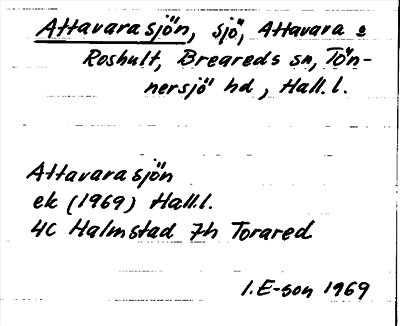 Attavarasjön, sjö, Attavara o
Roshult, Breareds sn, Tön-
nersjö hd, Hall. l.
Attavarasjön
ek (1969) Hall.l.
4C Halmstad 7h Torared
I. E-son 1969